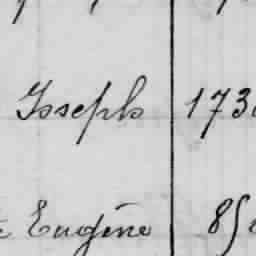 Joseph 173
Eugène 85